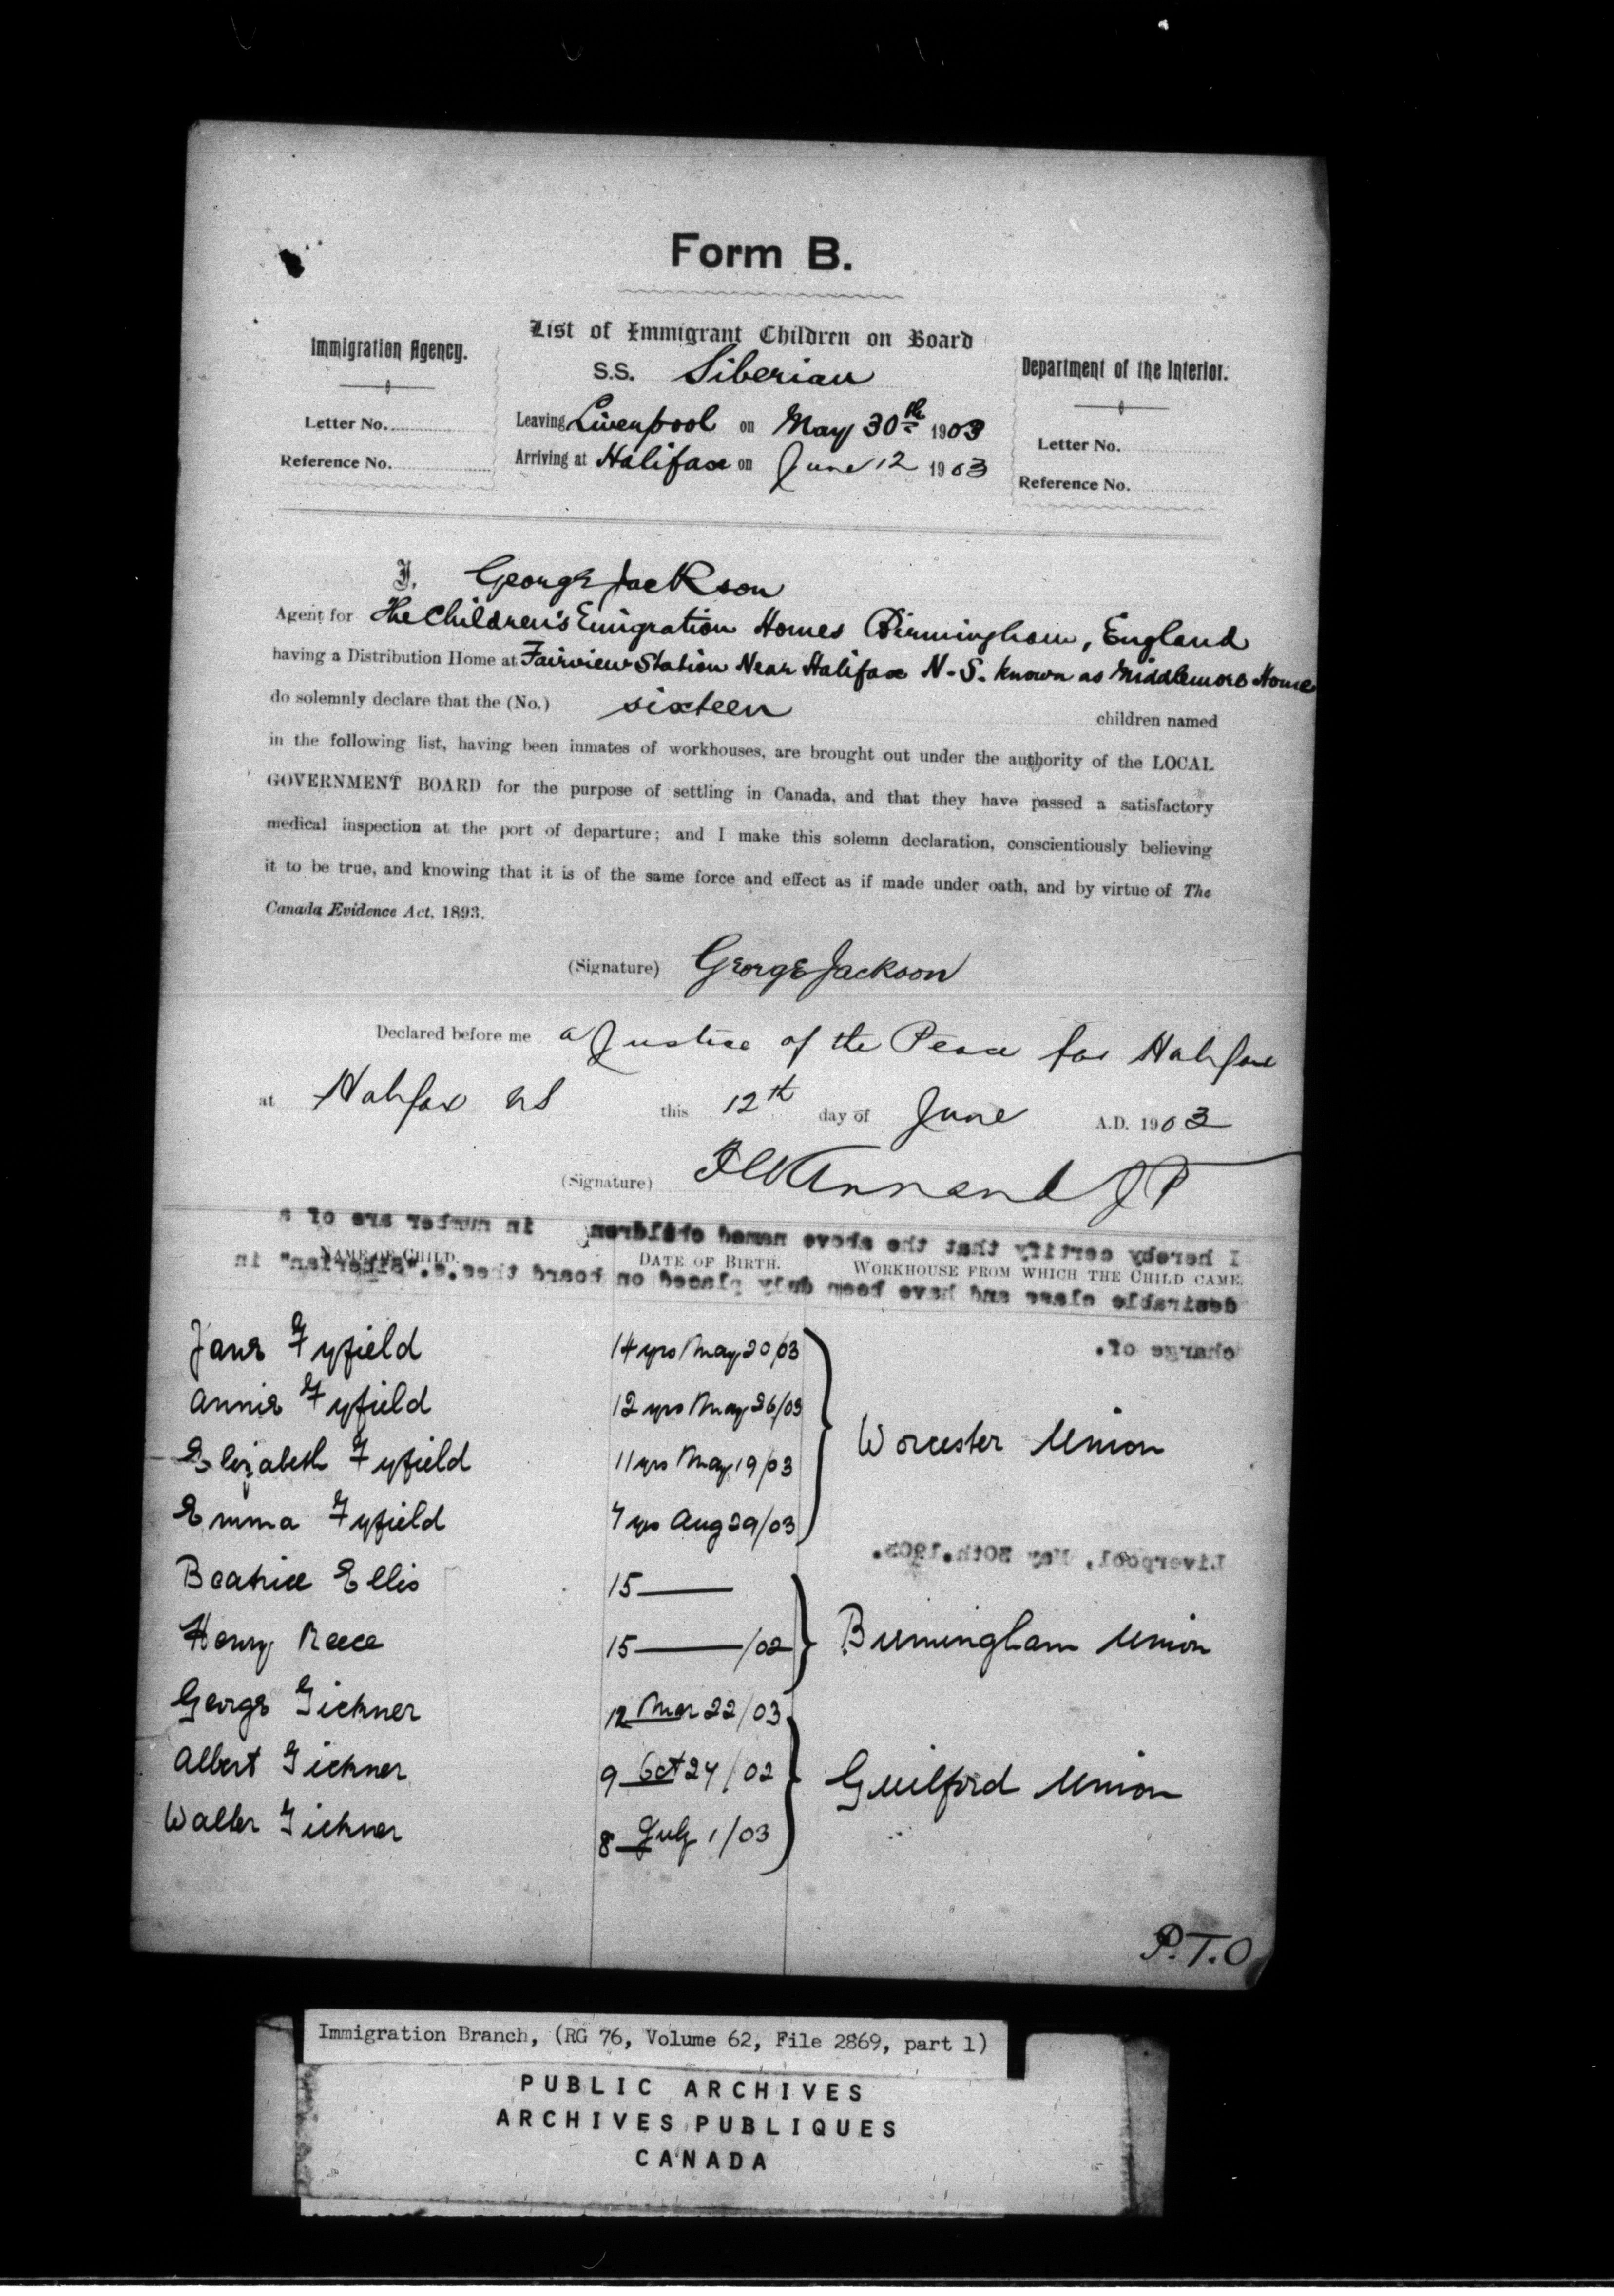 Form B.
Immigration Agency.
Letter No.
Reference No.
List of Immigrant Children on Board
S.S. Siberian
Leaving Liverpool on May 30th 1903
Arriving at Halifax on June 12 1903
Department of the Interior.
Letter No.
Reference No.
I, George Jackson
Agent for The Children's Emigration Homes Birmingham, England
having a Distribution Home at Fairview Station Near Halifax N-S. known as Middlemore Home
do solemnly declare that the (No.) sixteen children named
in the following list, having been inmates of workhouses, are brought out under the authority of the LOCAL
GOVERNMENT BOARD for the purpose of settling in Canada, and that they have passed a satisfactory
medical inspection at the port of departure; and I make this solemn declaration, conscientiously believing
it to be true, and knowing that it is of the same force and effect as if made under oath, and by virtue of The
Canada Evidence Act, 1893.
(Signature) George Jackson
Declared before me a Justice of the Peace for Halifax
at Halifax NS this 12th day of June A.D. 1903
(Signature) Annand JP
I hereby certify that the above named children in number are of a
NAME OF CHILD. DATE OF BIRTH. WORKHOUSE FROM WHICH THE CHILD CAME.
desirable class and have been duly placed on board the s.s. "Siberian" in
charge of.
Jane Fyfield 14 yrs May 20/03
Annie Fyfield 12 yrs May 26/03
Worcester Union
Elizabeth Fyfield 11 yrs May 19/03
Emma Fyfield 7 yrs Aug 29/03
Liverpool, May 30th. 1903.
Beatrice Ellis 15
Henry Reece 15 /02 Birmingham Union
George Tickner 12 Mar 22/03
Albert Tickner 9 Oct 24/02 Guilford Union
Walter Tickner 8 July 1/03
P.T.O
Immigration Branch, (RG 76, Volume 62, File 2869, part 1)
PUBLIC ARCHIVES
ARCHIVES PUBLIQUES
CANADA